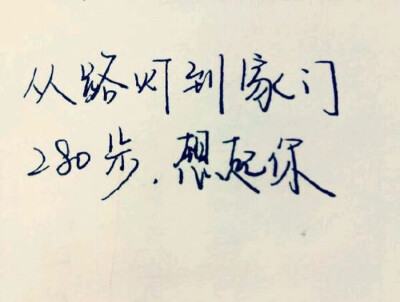 从路灯到家门
280步,想起你